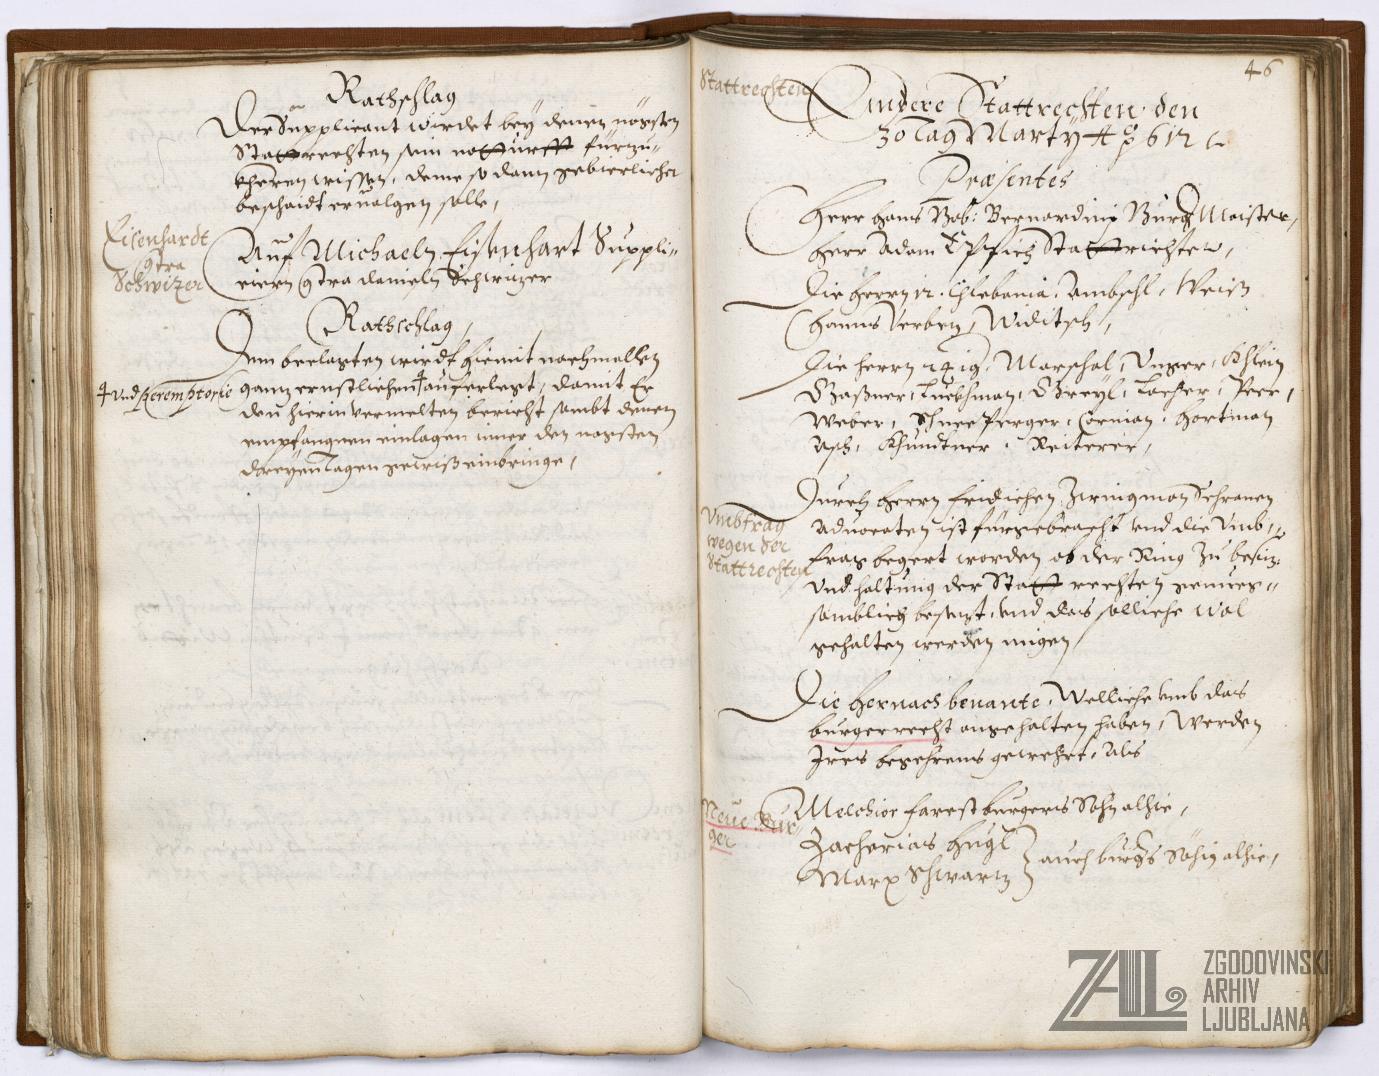 Rathschlag
Der Supplicant wirdet bey denen nägsten
Stattrechten sein notturfft fürzu-
kheren wissen, deme so dann gebierlicher
beschaidt ervolgen solle,
Eisenhardt
contra
Schwizer
Auf Michaeln Eisenhart Suppli-
cieren contra danieln Schwizer
Rathschlag,
Dem beclagten wirdt hiemit nachmallen
ganz ernstlichen auferlegt, damit Er
und peremptorie
den hierin vermelten bericht sambt denen
empfangnen einlagen inner den nägsten
dreyen Tagen gewiß einbringe,
46
Stattrechten
Andere Stattrechten den
30 Tag Marty Ao 612
Præsentes
Herr Hans Bernardini Burgermaister,
Herr Adam Stattrichter,
Die Herrn 12. Chlebania, Weiß
Hanns Verben, Widitsch,
Die Herrn 24ig. Marschal, Unger, Khlein
Gaßner, Greyl, Peer,
Weber, Schneeperger, Cornian, Hartman
Khundtner, Reiterer,
Umbfrag
wegen der
Stattrechten
Durch Herrn Fridichen Schranen
Advocaten ist fürgebracht und die Umb-
frag begert worden ob der Ring zu besiz-
und haltung der Stattrechten genueg-
samblich besezt, und das solliche wol
gehalten werden mügen,
Die hernach benante, Welliche umb das
burgerrecht angehalten haben, Werden
Ires begehrens gewehrt, Als
Neue Bur-
ger
Melchior Farest burgers Sohn alhie,
Zacherias Hugl
Marx Schwartz
auch burgers Söhn alhie,
ZGODOVINSKI
ARHIV
LJUBLJANA